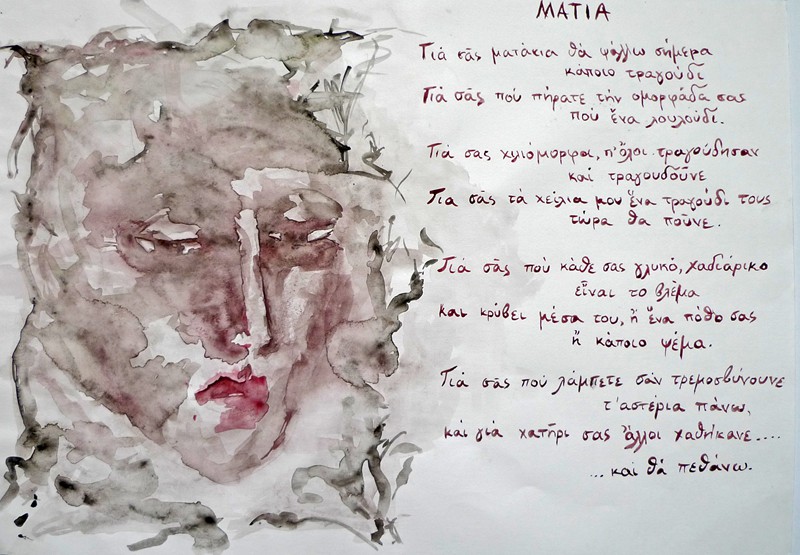 ΜΑΤΙΑ
Γιά σᾶς ματάκια θά ψάλλω σήμερα
κάποιο τραγούδι
Γιά σᾶς πού πήρατε τήν ομορφάδα σας
πού ἕνα λουλούδι.
Γιά σας χιλιόμορφα, π' ὅλοι τραγούδησαν
καί τραγουδοῦνε
Για σᾶς τά χείλια μου ἕνα τραγούδι τους
τώρα θα ποῦνε.
Γιά σᾶς πού κάθε σας γλυκό, χαδιάρικο
εἶναι το βλέμα
και κρύβει μέσα του, ἤ ἕνα πόθο σας
ἤ κάποιο ψέμα.
Γιά σᾶς πού λάμπετε σάν τρεμοσβύνουνε
τ'αστέρια πάνω,
καί γιά χατήρι σας ἄλλοι χαθήκανε....
... καί θά πεθάνω.